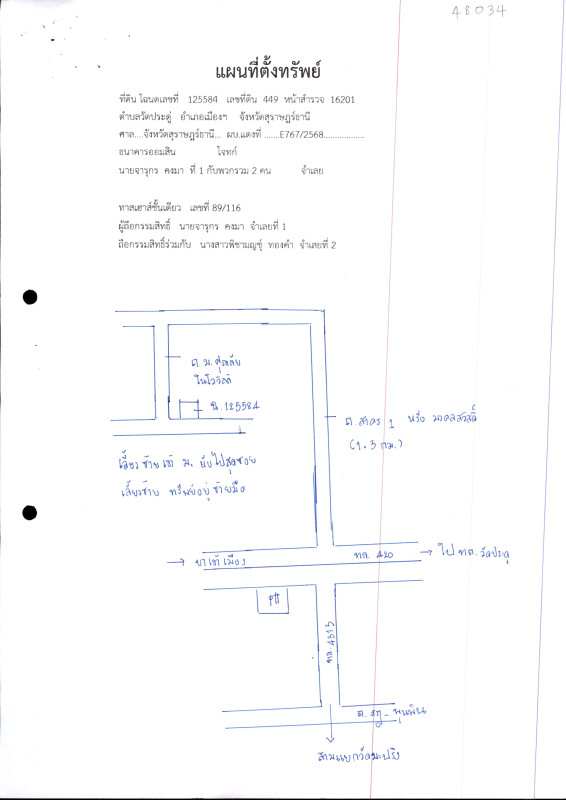 48034
แผนที่ตั้งทรัพย์
ที่ดิน โฉนดเลขที่ 125584 เลขที่ดิน 449 หน้าสำรวจ 16201
ตำบลวัดประดู่ อำเภอเมืองฯ จังหวัดสุราษฎร์ธานี
ศาล....จังหวัดสุราษฎร์ธานี... ผบ.แดงที่ .......E767/2568..................
ธนาคารออมสิน โจทก์
นายจารุกร คงมา ที่ 1 กับพวกรวม 2 คน จำเลย
ทาสเฮาส์ชั้นเดียว เลขที่ 89/116
ผู้ถือกรรมสิทธิ์ นายจารุกร คงมา จำเลยที่ 1
ถือกรรมสิทธิ์ร่วมกับ นางสาวพิชามญชุ์ ทองคำ จำเลยที่ 2
ถ. ม. ศุภชัย
น.125584
ถ. สาคร 1 หรือ
(1.3 กม.)
เลี้ยวซ้ายเข้า ม. ไปสุดซอย
เลี้ยวซ้าย ทรัพย์อยู่ซ้ายมือ
→ มาเข้าเมือง
ทล. 420
→ ไป ทต. วัดประดู่
ptt
ทล. 4313
ถ. สฎ - พุนพิน
สามแยกวัดมะปริง